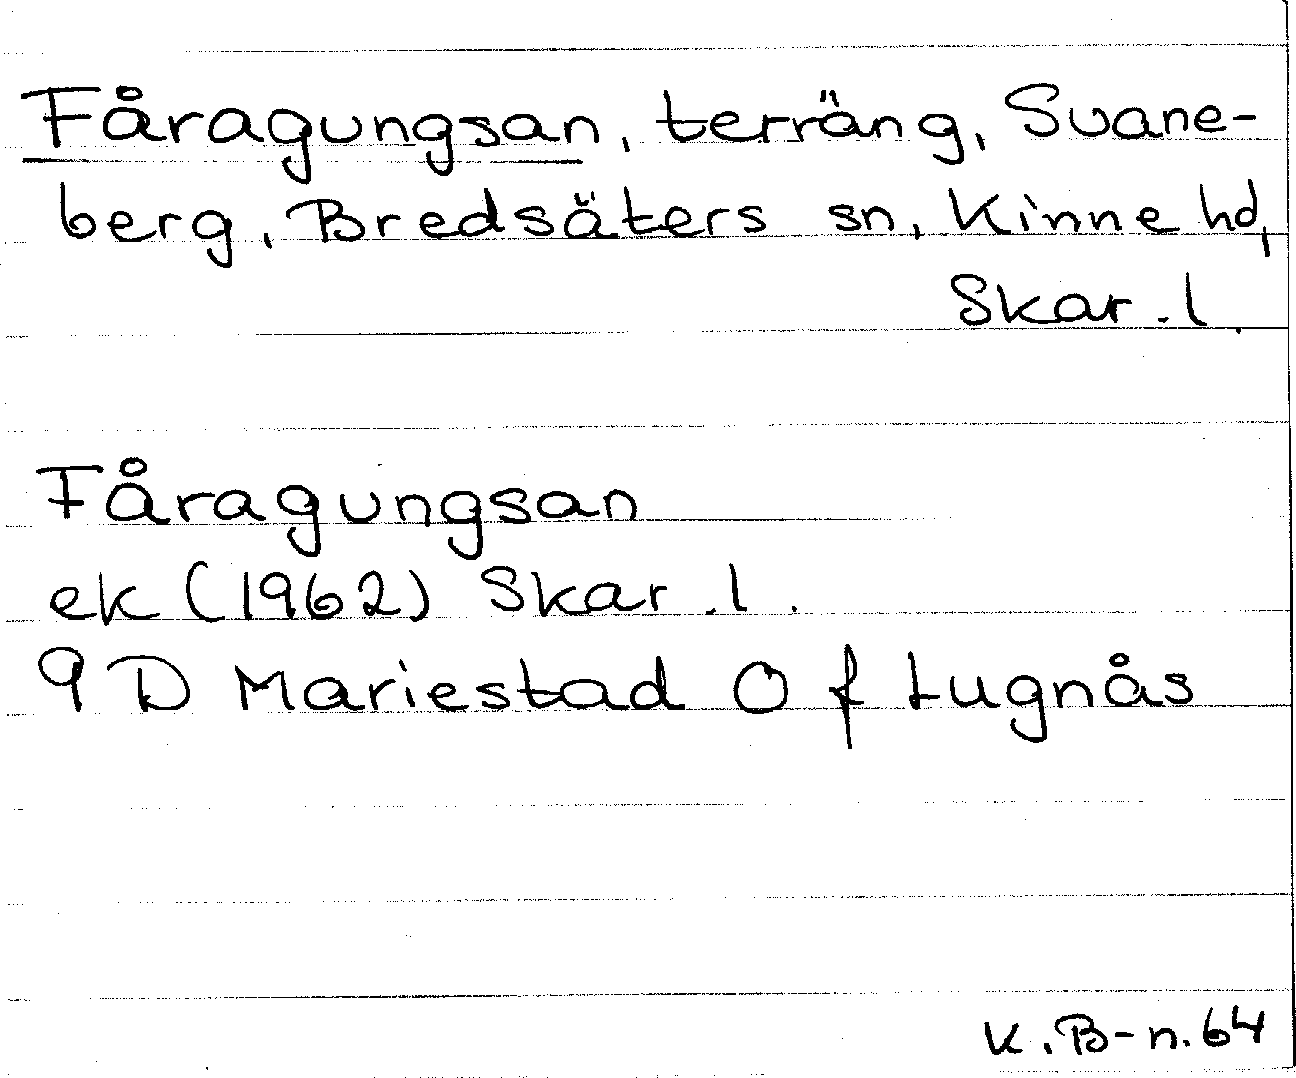 Fåragungsan, terräng, Svane-
berg, Bredsäters sn, Kinne hd,
Skar. l.
Fåragungsan
ek (1962) Skar. l.
9 D Mariestad O f Lugnås
K. B-n. 64